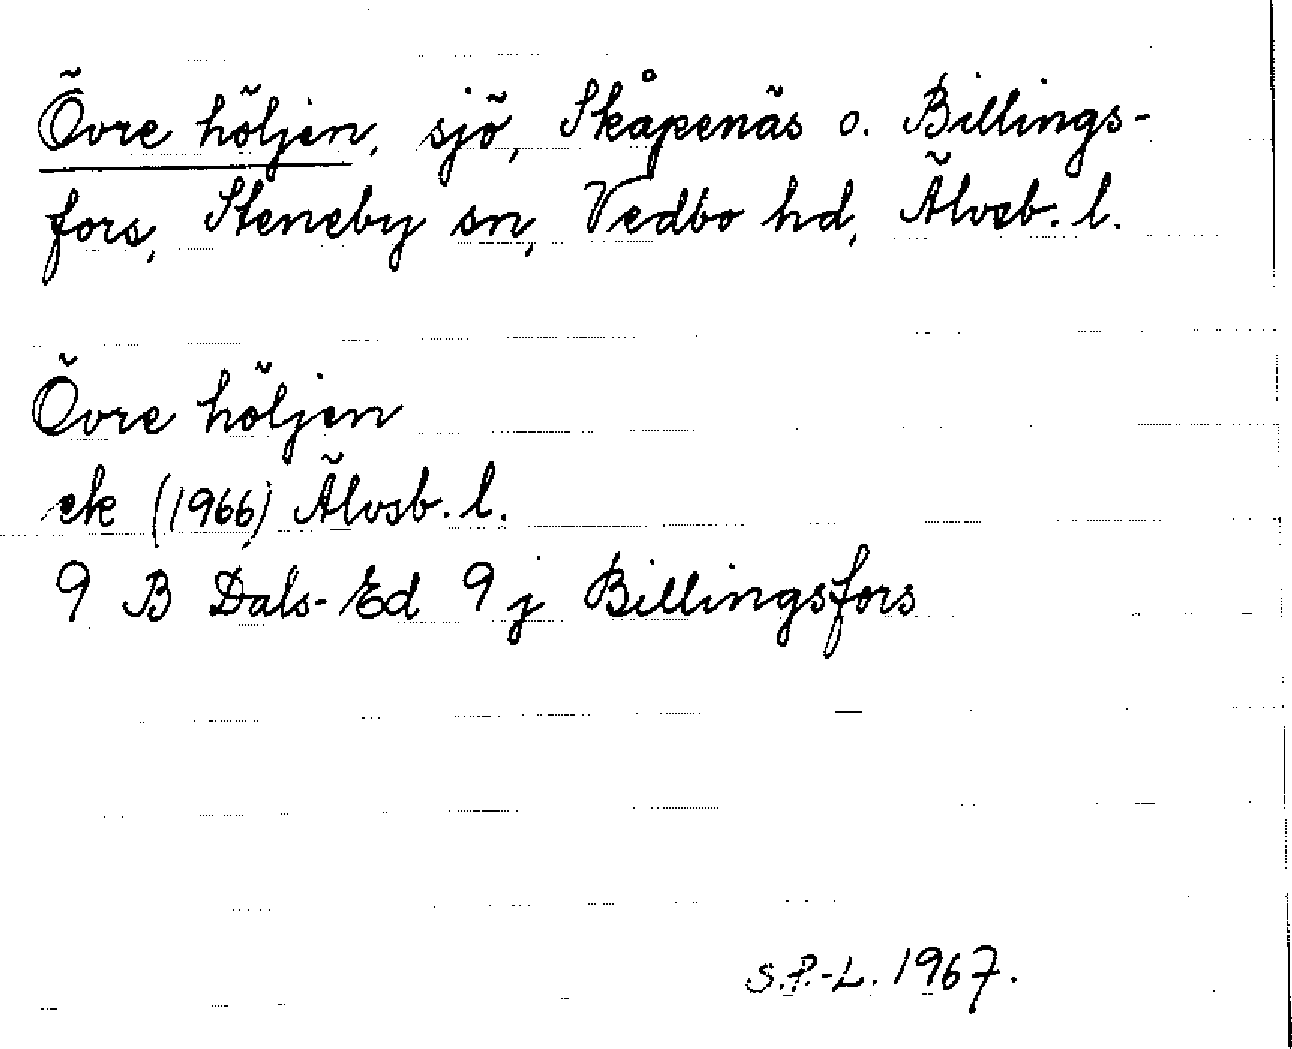 Övre höljen, sjö, Skåpenäs o. Billings-
fors, Steneby sn, Vedbo hd, Älvsb. l.
Övre höljen
ek (1966) Älvsb. l.
9 B Dals-Ed 9 j Billingsfors
S.P.-L. 1967.